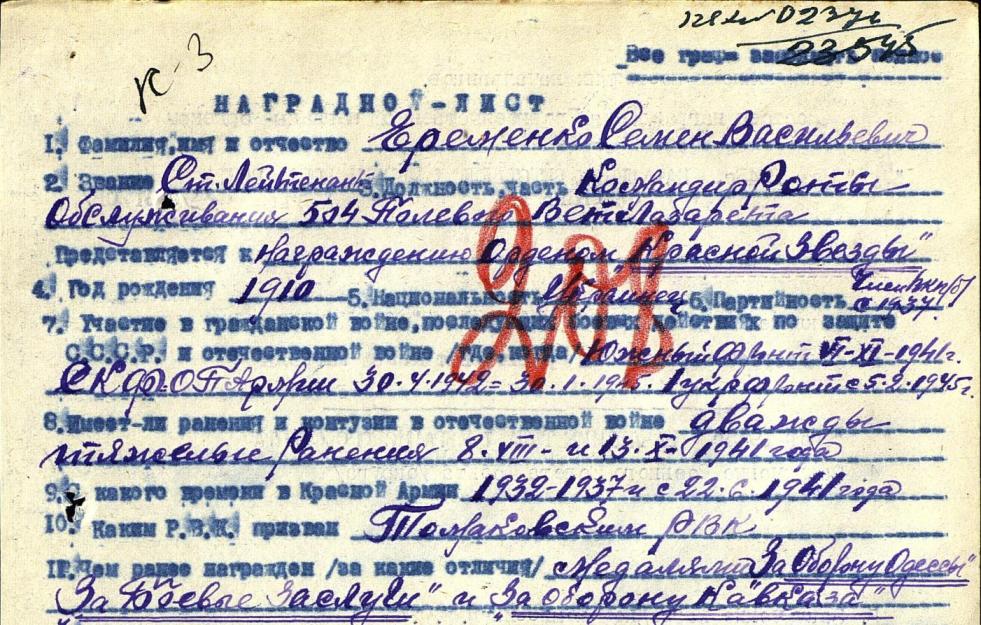 К-3
02376
23545
Все графы заполнять
НАГРАДНОЙ-ЛИСТ
1. Фамилия, имя и отчество Еременко Семен Васильевич
2. Звание Ст. Лейтенант 3. Должность, часть Командир Роты
Обслуживания 504 Полевого Ветлазарета
Представляется к награждению Орденом "Красной Звезды"
4. Год рождения 1910 5. Национальность Украинец 6. Партийность Член ВКП/б/ с 1937г.
7. Участие в гражданской войне, последующих боевых действиях по защите
С.С.С.Р. и отечественной войне /где, когда/ Южный Фронт VI-XI-1941г.
СКФ. ОПАрмии 30.4.1942= 30.1.1945. 1 укр. фронт с 5.2.1945г.
8. Имеет-ли ранения и контузии в отечественной войне дважды
тяжелые Ранения 8.VIII- и 13.X-1941 года
9. С какого времени в Красной Армии 1932-1937 и с 22.6.1941 года
10. Каким Р.В.К. призван Томаковским РВК
11. Чем ранее награжден /за какие отличия/ медалями "За Оборону Одессы"
"За Боевые Заслуги" и "За оборону Кавказа"